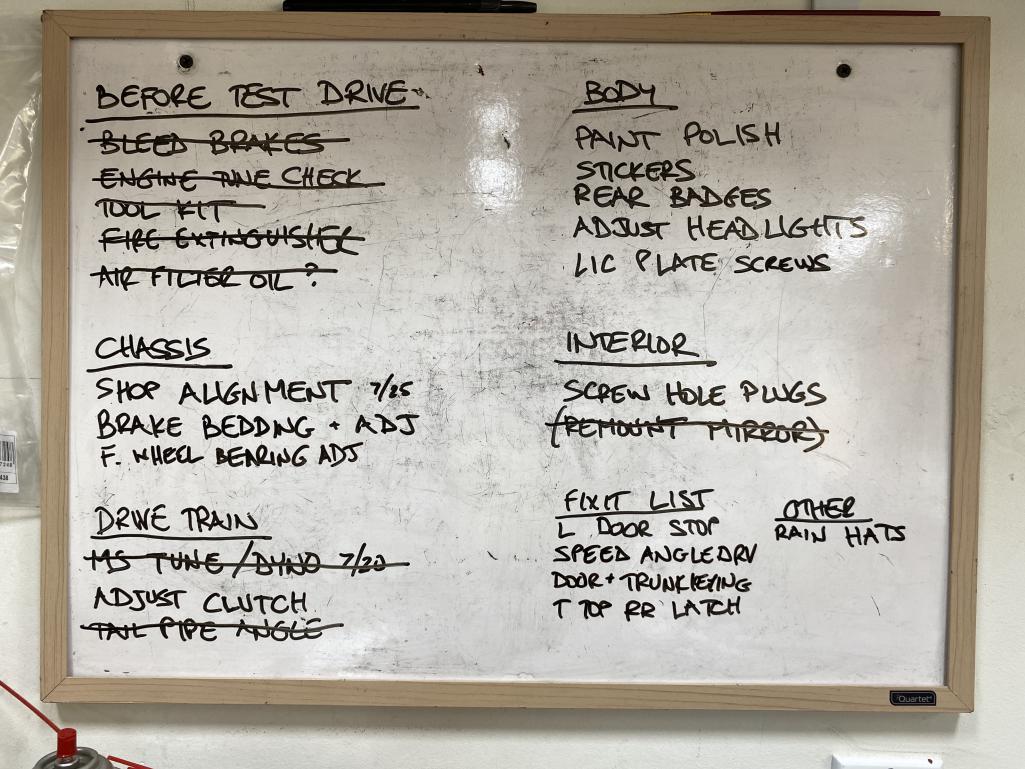 BEFORE TEST DRIVE
BLEED BRAKES
ENGINE TUNE CHECK
TOOL KIT
FIRE EXTINGUISHER
AIR FILTER OIL ?
CHASSIS
SHOP ALIGNMENT 7/25
BRAKE BEDDING + ADJ
F. WHEEL BEARING ADJ
DRIVE TRAIN
MS TUNE / DYNO 7/20
ADJUST CLUTCH
TAIL PIPE ANGLE
BODY
PAINT POLISH
STICKERS
REAR BADGES
ADJUST HEADLIGHTS
LIC PLATE SCREWS
INTERIOR
SCREW HOLE PLUGS
(REMOUNT MIRROR)
FIXIT LIST
L DOOR STOP
SPEED ANGLE DRV
DOOR + TRUNK KEYING
T TOP RR LATCH
OTHER
RAIN HATS
Quartet